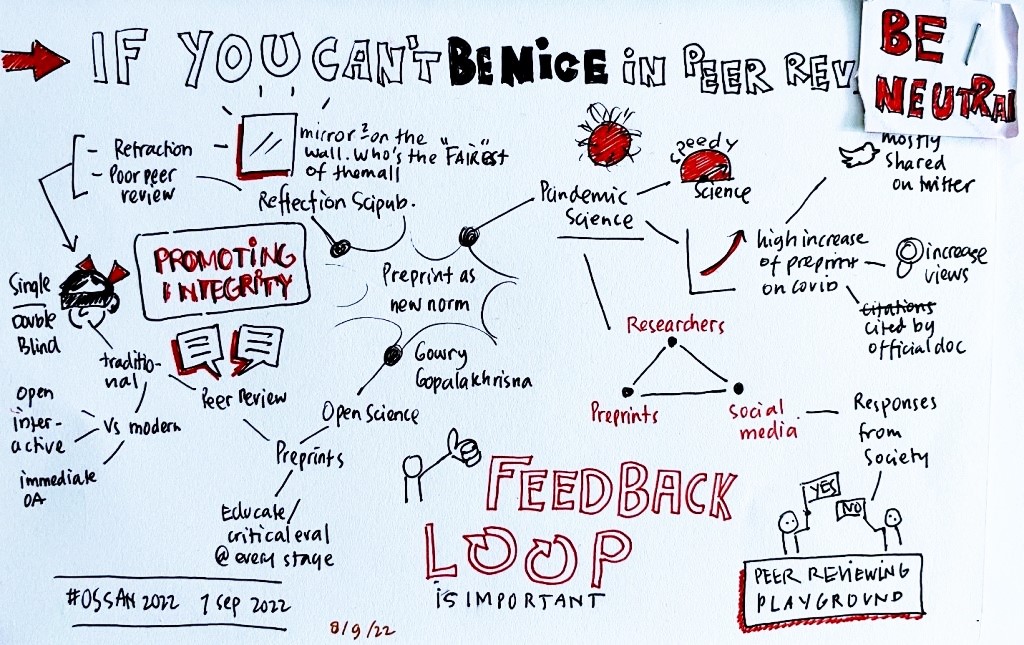 IF YOU CAN'T BE NICE IN PEER REV
BE
NEUTRAL
- Retraction
- Poor peer
review
mirror on the
wall. Who's the "FAIREST
of them all
Reflection Scipub.
PROMOTING
INTEGRITY
Single
Double
Blind
traditio-
nal
Vs modern
open
inter-
active
immediate
OA
Peer Review
Preprints
Educate/
critical eval
@ every stage
Open Science
Preprint as
new norm
Gowry
Gopalakhrisna
Pandemic
Science
Speedy
Science
high increase
of preprint
on covid
mostly
shared
on twitter
increase
views
citations
cited by
official doc
Researchers
Preprints
Social
media
Responses
from
Society
YES
NO
PEER REVIEWING
PLAYGROUND
FEEDBACK
LOOP
IS IMPORTANT
#OSSAN2022 1 sep 2022
8/9/22